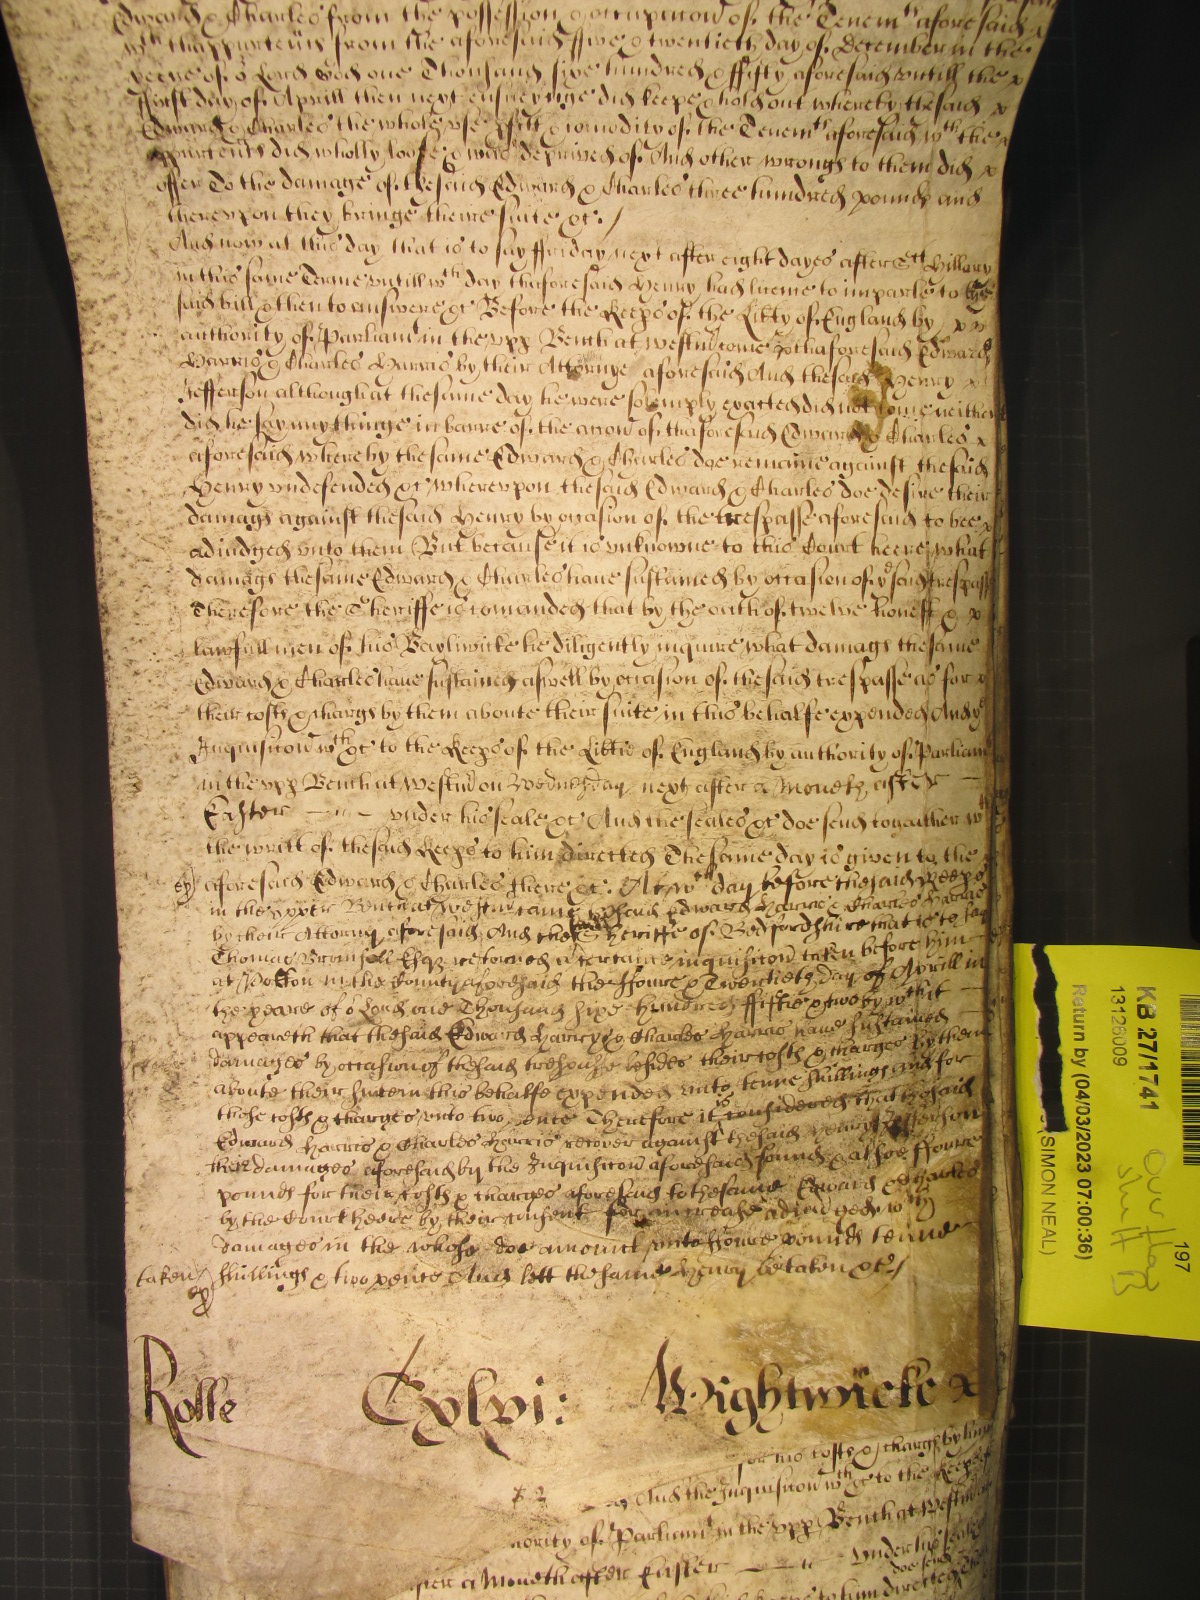 Edward & Charles from the possession & occupacion of the Tenemts aforesaid
wth thappurtents from the aforesaid ffive & twentieth day of December in the
yeere of or Lord God one Thousand sixe hundred & ffifty aforesaid untill the x
ffirst day of Aprill then next ensueynge did keepe & hold out whereby thesaid x
Edward & Charles the whole use pfitt & comodity of the Tenemts aforesaid wth the
appurtents did wholly loose & was deprived of And other wrongs to them did x
offer To the damage of thesaid Edward & Charles three hundred pounds and
thereupon they bringe theire suite &c. /
And now at this day that is to say ffriday next after eight dayes after St Hillary
in this same Terme untill wch day thaforesaid Henry had licence to imparle to the
said bill & then to answere &c Before the Keeps of the Libty of England by x x
authority of Parliamt in the upp Bench at Westmr come thaforesaid Edward
Harris & Charles Harris by their Attorney aforesaid And thesaid Henry x
Jefferson although at thesame day he were solemply exacted did not come neither
did he say anythinge in barre of the accon of thaforesaid Edward & Charles x
aforesaid whereby thesame Edward & Charles doe remaine against thesaid
Henry undefended &c whereupon thesaid Edward & Charles doe desire their
damags against thesaid Henry by occasion of the trespasse aforesaid to bee x
adiudged unto them But because it is unknowne to this Court heere what
damags thesame Edward & Charles have sustained by occasion of ye said trespass
Therefore the Sheriffe is comanded that by the oath of twelve honest & x
lawfull men of his Bayliwicke he diligently inquire what damags thesame
Edward & Charles have sustained aswell by occasion of thesaid trespasse as for x
their costs & chargs by them aboute their suite in this behalfe expended And ye
Inquisicon wch &c to the Keeps of the Libtie of England by authority of Parliamt
in the upp Bench at Westmr on Wednesday next after a Moneth after
Easter under his seale &c And the seales &c doe send togaither wth
the writt of thesaid Keeps to him directed Thesame day is given to the
aforesaid Edward & Charles there &c. At wch day before thesaid Keeps
in the upper Bench at Westmr came thesaid Edward Harris & Charles Harris
by their Attorney aforesaid And the said Sheriffe of Bedfordshire that is to say
Thomas Esqr retorned a certaine inquisicon taken before him
at Potton in the County aforesaid the ffoure & Twentieth day of Aprill in
the yeare of or Lord one Thousand sixe hundred ffiftie & two by which
appeareth that thesaid Edward Harrys & Charles Harris have sustained
damages by occasion of thesaid trespasse besides their costs & charges by them
aboute their suite in this behalfe expended unto tenne shillings and for
those costs & charges unto two pence Therefore it is considered that thesaid
Edward Harris & Charles Harris recover against thesaid Henry Jefferson
their damages aforesaid by the Inquisicon aforesaid found & alsoe ffoure
pounds for their costs & charges aforesaid to thesame Edward & Charles
by the Court heere by their assent for an increase adiudged wch
damages in the whole doe amount unto ffoure pounds tenne
taken / shillings & two pence And lett thesame Henry be taken &c /
Rolle Wightwicke x
for his costs & chargs by him
And the Inquisicon wch &c to the Keeps
authority of Parliamt in the upp Bench at Westmr
after a Moneth after Easter under his seale
doe send
to him directed
KB 27/1741
13126009
Return by (04/03/2023 07:00:36)
(SIMON NEAL)
197